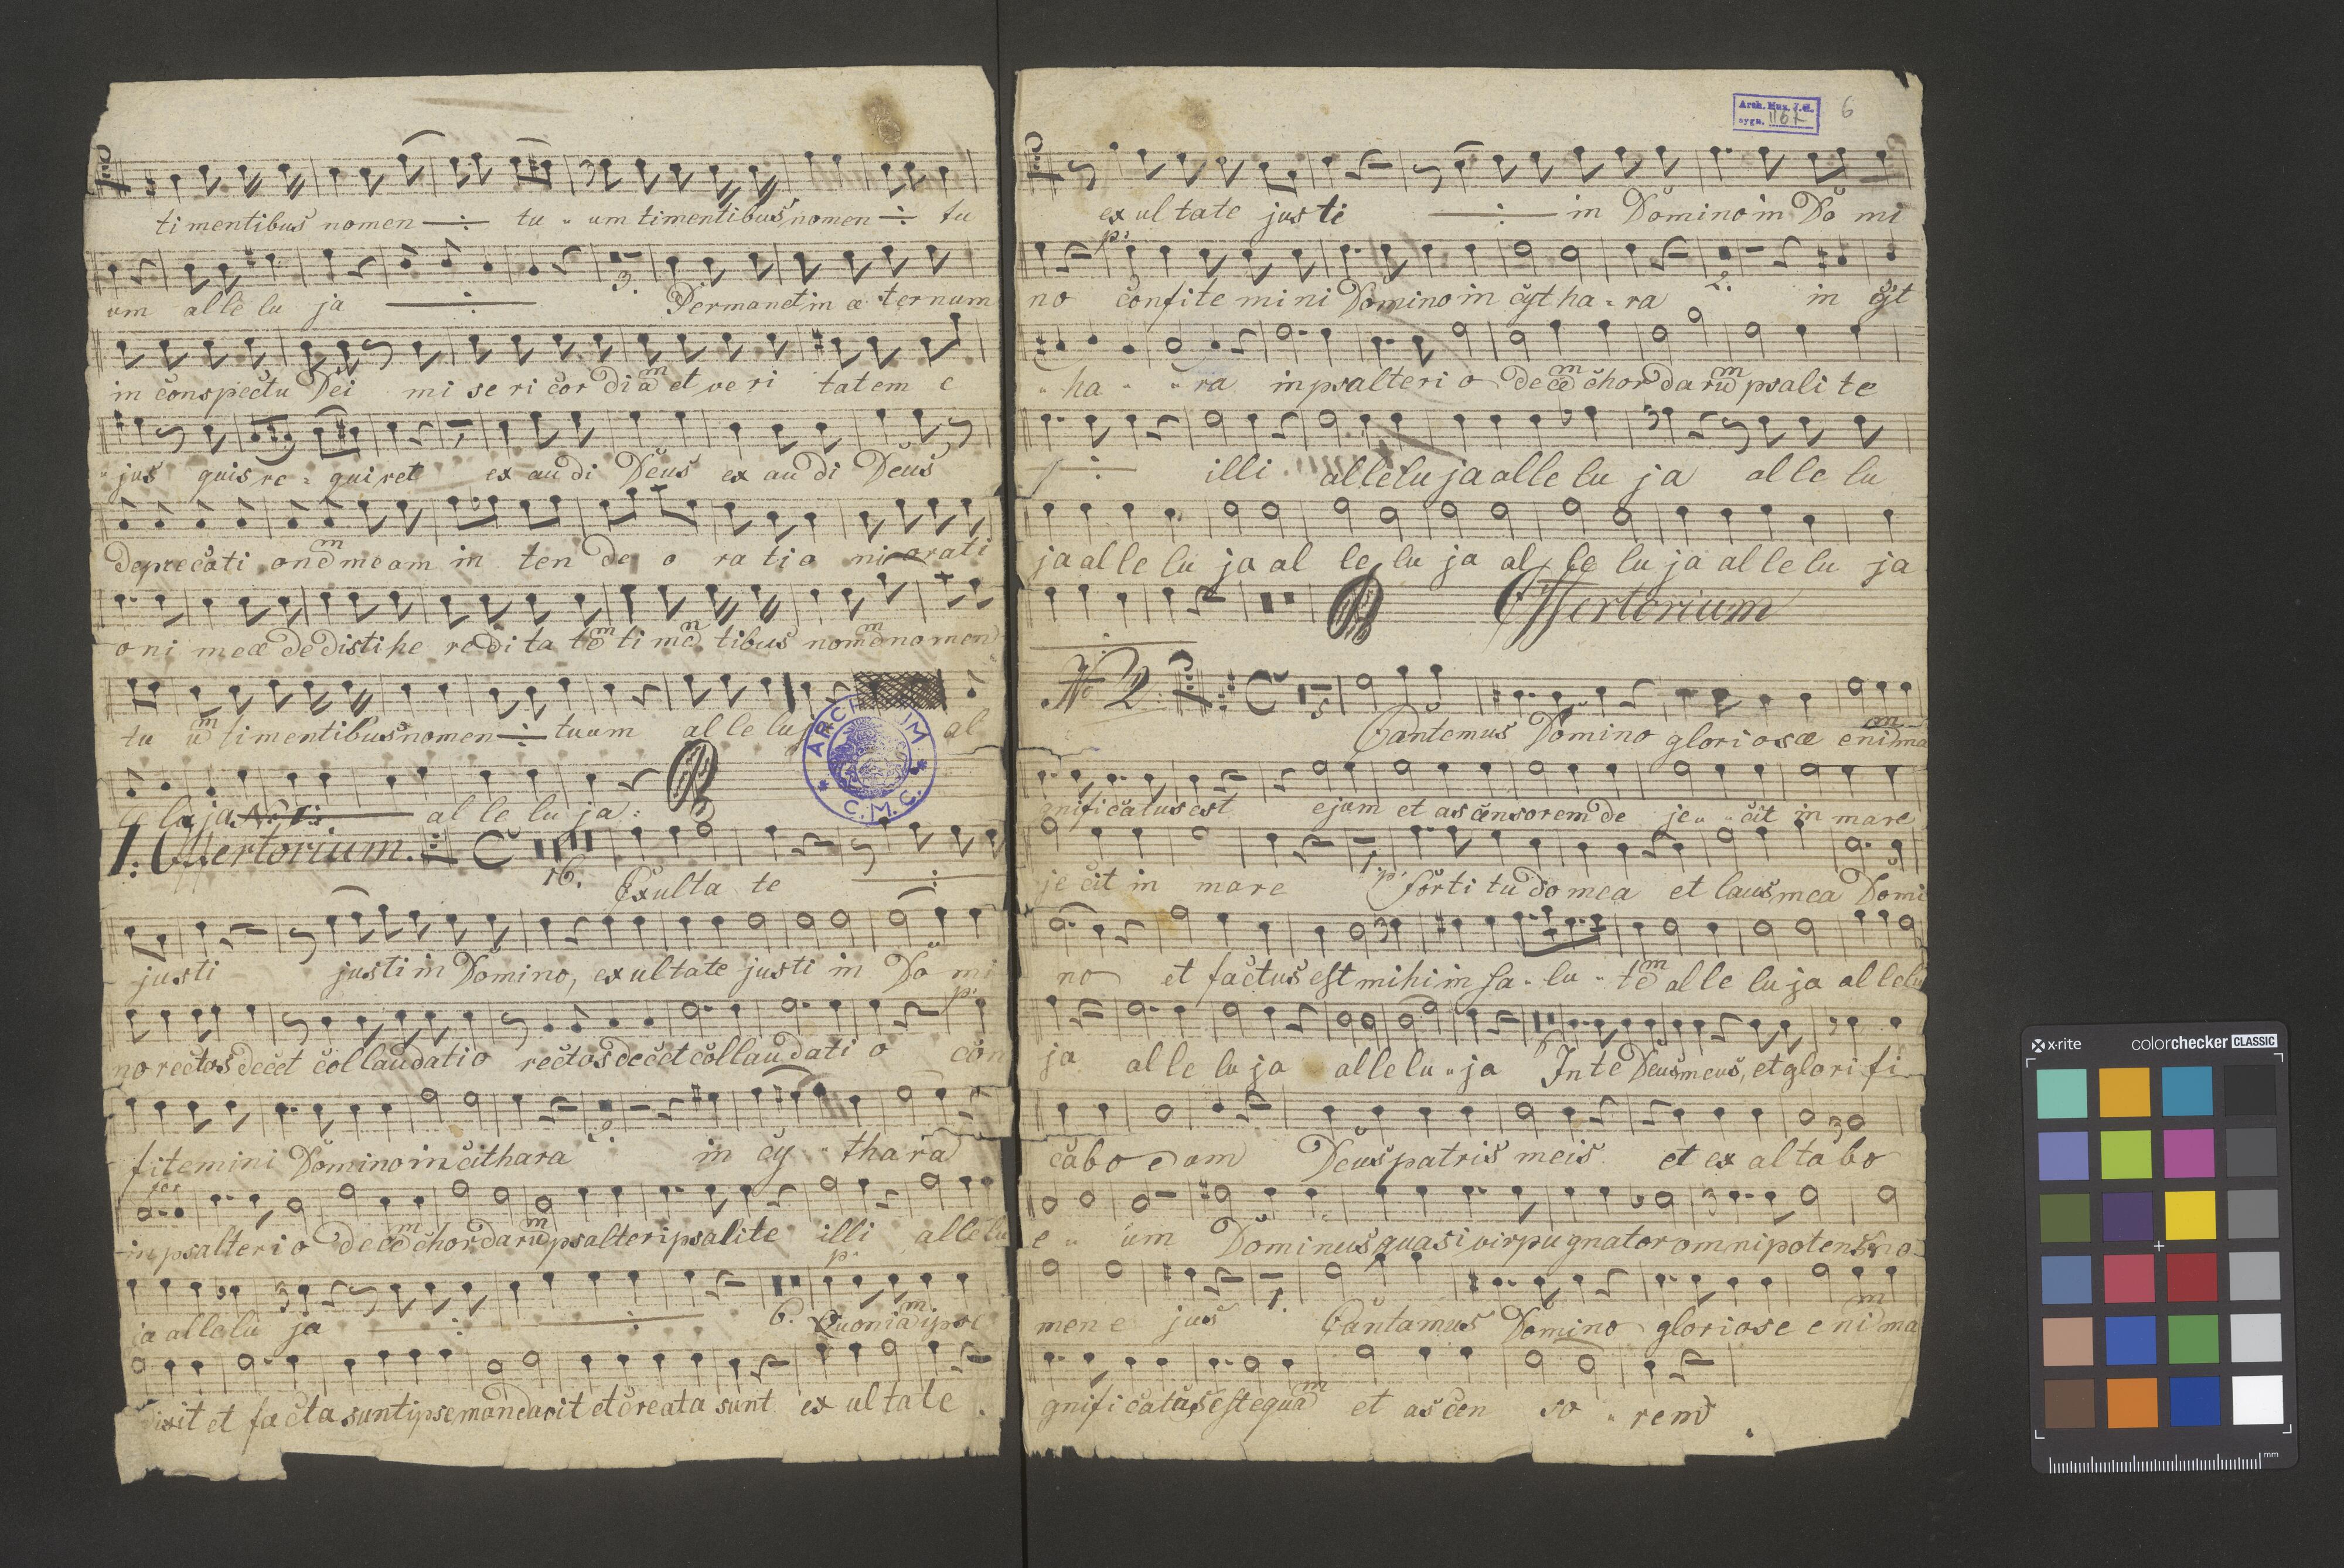 timentibus nomen tu um timentibus nomen tu
um alle lu ja 3. Permanet in æ ternum
in conspectu Dei mi se ri cor diam et ve ri tatem e
jus quis re quiret ex au di Deus ex au di Deus
deprecati onem meam in ten de o ra ti o ni orati
o ni meæ dedisti he redi ta tem timen tibus nomen nomen
tu um timentibus nomen tuum al le lu al
le lu ja al le lu ja:
1. Offertorium. 16. Exulta te
justi justi in Domino, exultate justi in Do mi
no rectos decet collaudatio rectos decet collaudati o con
p:
fitemini Domino in cithara 2. in cy thara
for
in psalterio decem chordarum psalteri psalite illi allelu
p:
ja allelu ja 6. Quoniam ipse
dixit et facta sunt ipse mandavit et creata sunt exultate
Arch. Muz. J.G.
sygn. 1167
6
exultate justi in Domino in Do mi
p:
no confitemini Domino in cyt ha ra 2. in cyt
ha ra in psalteri o decem chordarum psalite
illi alleluja alle lu ja al le lu
ja al le lu ja al le lu ja al le lu ja al le lu ja
Offertorium
No 2 5 Cantemus Domino gloriosæ enim ma
gnificatus est et ascensorem de je cit in mare
je cit in mare 1. p: fortitudo mea et laus mea Domi
no et factus est mihi in sa lu tem al le lu ja al lelu
ja al le lu ja allelu ja In te Deus meus, et glorifi
cabo eum Deus patris meis et ex al ta bo
e um Dominus quasi vir pugnator omnipotens no
men e jus 1. Cantamus Domino gloriose enim ma
gnificatus est equam et ascen so rem
ARCH IM C.M.C.
x-rite colorchecker CLASSIC
mm